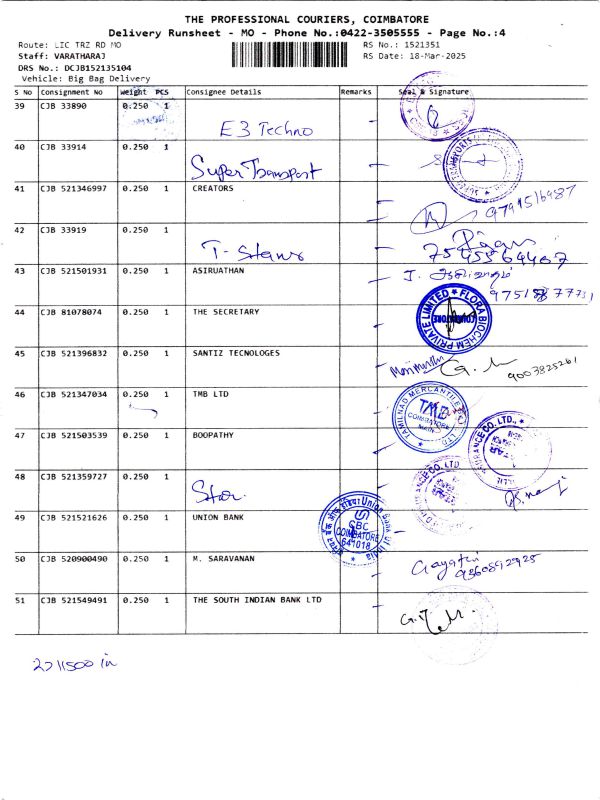 THE PROFESSIONAL COURIERS, COIMBATORE
Delivery Runsheet - MO - Phone No.:0422-3505555 - Page No.:4
Route: LIC TRZ RD MO RS No.: 1521351
Staff: VARATHARAJ RS Date: 18-Mar-2025
DRS No.: DCJB152135104
Vehicle: Big Bag Delivery
S No Consignment No Weight PCS Consignee Details Remarks Seal & Signature
39 CJB 33890 0.250 1
E3 Techno
40 CJB 33914 0.250 1
Super Transport
41 CJB 521346997 0.250 1 CREATORS
9791516987
42 CJB 33919 0.250 1
T-Stanes
7545564467
43 CJB 521501931 0.250 1 ASIRUATHAN
44 CJB 81078074 0.250 1 THE SECRETARY
FLORA BIOCHEM PRIVATE LIMITED
COIMBATORE
45 CJB 521396832 0.250 1 SANTIZ TECNOLOGES
9003825261
46 CJB 521347034 0.250 1 TMB LTD
TAMILNAD MERCANTILE
TMB
COIMBATORE
LTD
47 CJB 521503539 0.250 1 BOOPATHY
48 CJB 521359727 0.250 1
Star
49 CJB 521521626 0.250 1 UNION BANK
Union Bank Of India
SBC
COIMBATORE
641018
50 CJB 520900490 0.250 1 M. SARAVANAN
Gayatri
9360892925
51 CJB 521549491 0.250 1 THE SOUTH INDIAN BANK LTD